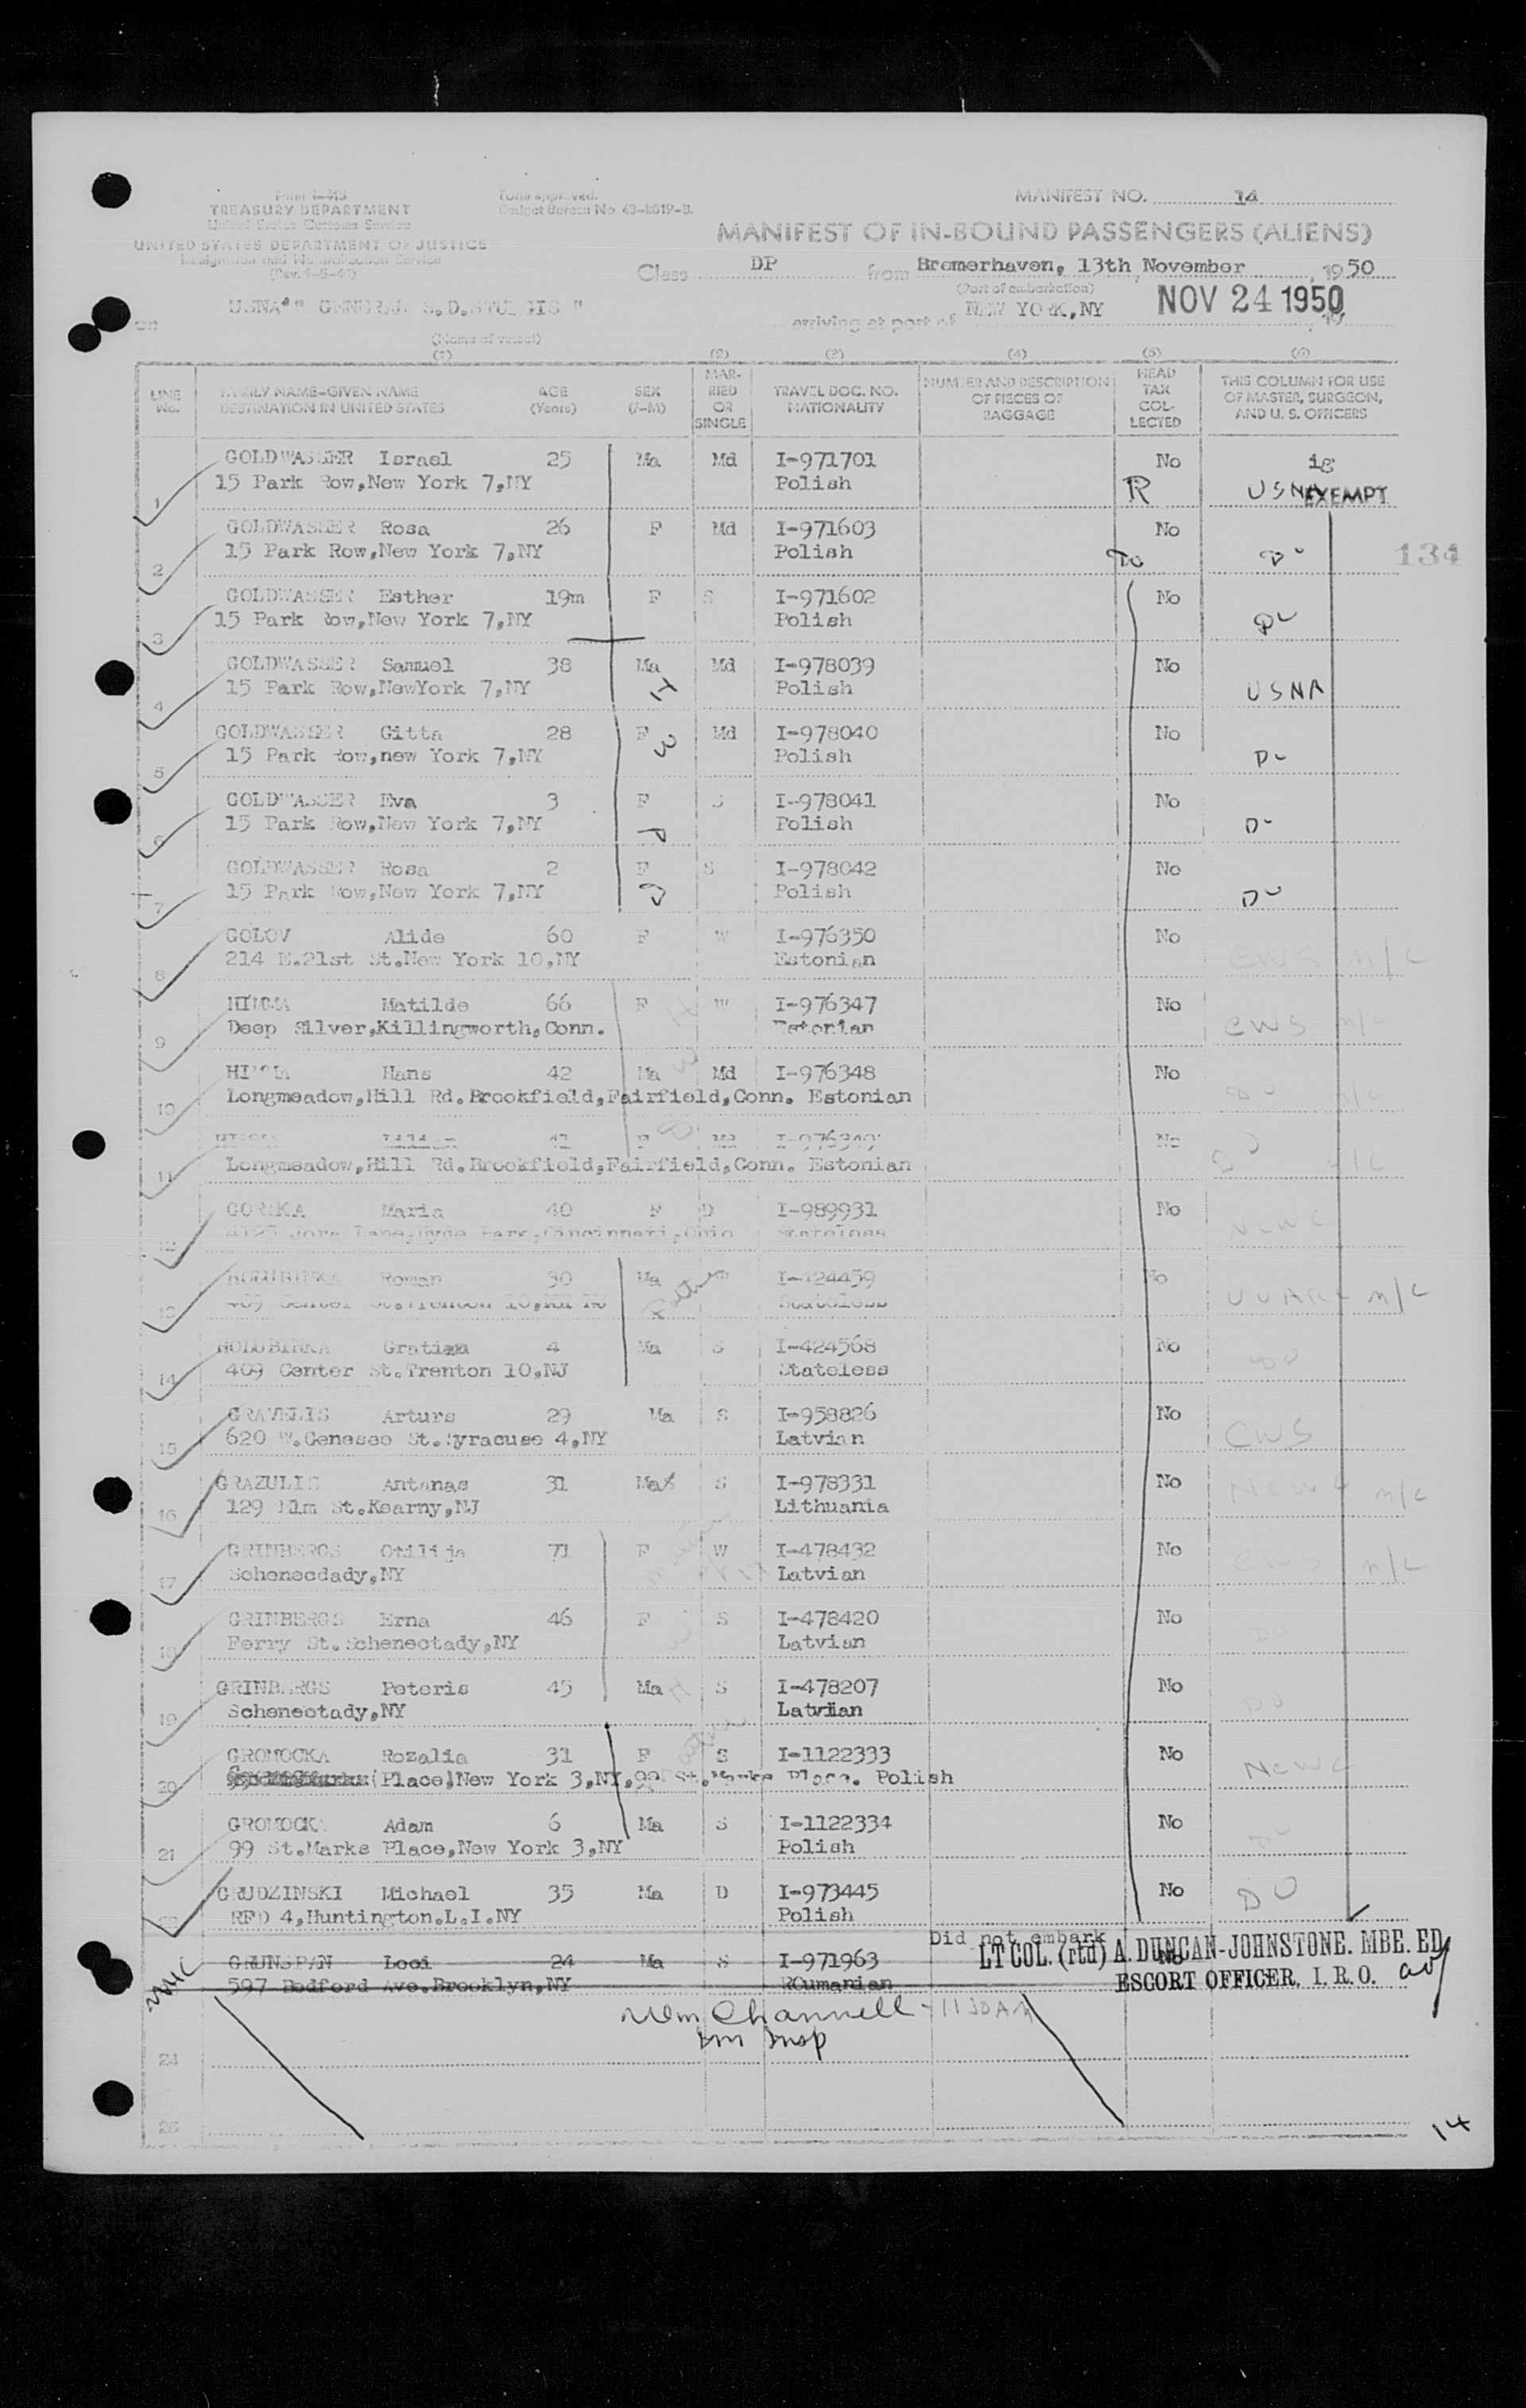 Form I-415
TREASURY DEPARTMENT
United States Customs Service
UNITED STATES DEPARTMENT OF JUSTICE
Immigration and Naturalization Service
Form approved.
Budget Bureau No. 43-R019-3.
MANIFEST NO. 14
MANIFEST OF IN-BOUND PASSENGERS (ALIENS)
Class DP from Bremerhaven, 13th November, 1950
(Port of embarkation)
" GENERAL S.D.STURGIS "
on
(Name of vessel)
arriving at port of NEW YORK,NY NOV 24 1950
(1) (2) (3) (4) (5) (6)
LINE No.
FAMILY NAME-GIVEN NAME
DESTINATION IN UNITED STATES
AGE (Years)
SEX (F-M)
MARRIED OR SINGLE
TRAVEL DOC. NO. NATIONALITY
NUMBER AND DESCRIPTION OF PIECES OF BAGGAGE
HEAD TAX COLLECTED
THIS COLUMN FOR USE OF MASTER, SURGEON, AND U. S. OFFICERS
GOLDWASSER Israel 25 Ma Md I-971701 No
1 15 Park Row,New York 7,NY Polish R USNA EXEMPT
GOLDWASSER Rosa 26 F Md I-971603 No
2 15 Park Row,New York 7,NY Polish Do
134
GOLDWASSER Esther 19m F S I-971602 No
3 15 Park Row,New York 7,NY Polish
GOLDWASSER Samuel 38 Ma Md I-978039 No
4 15 Park Row,NewYork 7,NY Polish USNA
GOLDWASSER Gitta 28 F Md I-978040 No
5 15 Park Row,new York 7,NY Polish
GOLDWASSER Eva 3 F S I-978041 No
6 15 Park Row,New York 7,NY Polish
GOLDWASSER Rosa 2 F S I-978042 No
7 15 Park Row,New York 7,NY Polish
GOLOV Alide 60 F W I-976350 No
8 214 E.21st St.New York 10,NY Estonian CWS n/c
Matilde 66 F W I-976347 No
9 Deep Silver,Killingworth,Conn. Estonian CWS n/c
Hans 42 Ma Md I-976348 No
10 Longmeadow,Hill Rd.Brookfield,Fairfield,Conn. Estonian Do n/c
41 F I-976349 No
11 Longmeadow,Hill Rd.Brookfield,Fairfield,Conn. Estonian n/c
GORSKA Maria 40 F D I-989931 No
12 Hyde Park,Cincinnati,Ohio Stateless NCWC
HOLUBINKA Roman 30 Ma I-424459 No
13 409 Center St.Trenton 10, NJ Stateless n/c
HOLUBINKA Gratian 4 Ma S I-424568 No
14 409 Center St.Trenton 10,NJ Stateless Do
GRAVELIS Arturs 29 Ma S I-958826 No
15 620 W.Genesee St.Syracuse 4,NY Latvian CWS
GRAZULIS Antanas 31 Ma S I-978331 No
16 129 Elm St.Kearny,NJ Lithuania NCWC n/c
GRINBERGS Otilija 71 F W I-478432 No
17 Schenecdady,NY Latvian CWS n/c
GRINBERGS Erna 46 F S I-478420 No
18 Ferry St.Schenectady,NY Latvian Do
GRINBERGS Peteris 45 Ma S I-478207 No
19 Schenectady,NY Latvian Do
GROMOCKA Rozalia 31 F S I-1122333 No
20 (Place)New York 3,NY,99 St.Marks Place. Polish NCWC
GROMOCKA Adam 6 Ma S I-1122334 No
21 99 St.Marks Place,New York 3,NY Polish Do
GRUDZINSKI Michael 35 Ma D I-973445 No DO
RFD 4,Huntington.L.I.NY Polish
Did not embark
GRUNSPAN Looi 24 Ma S I-971963 No
597 Bedford Ave.Brooklyn,NY ROumanian
LT COL. (rtd) A. DUNCAN-JOHNSTONE. MBE. ED
ESCORT OFFICER, I. R. O.
Wm Channell - 1130AM
Im Insp
24
25
14